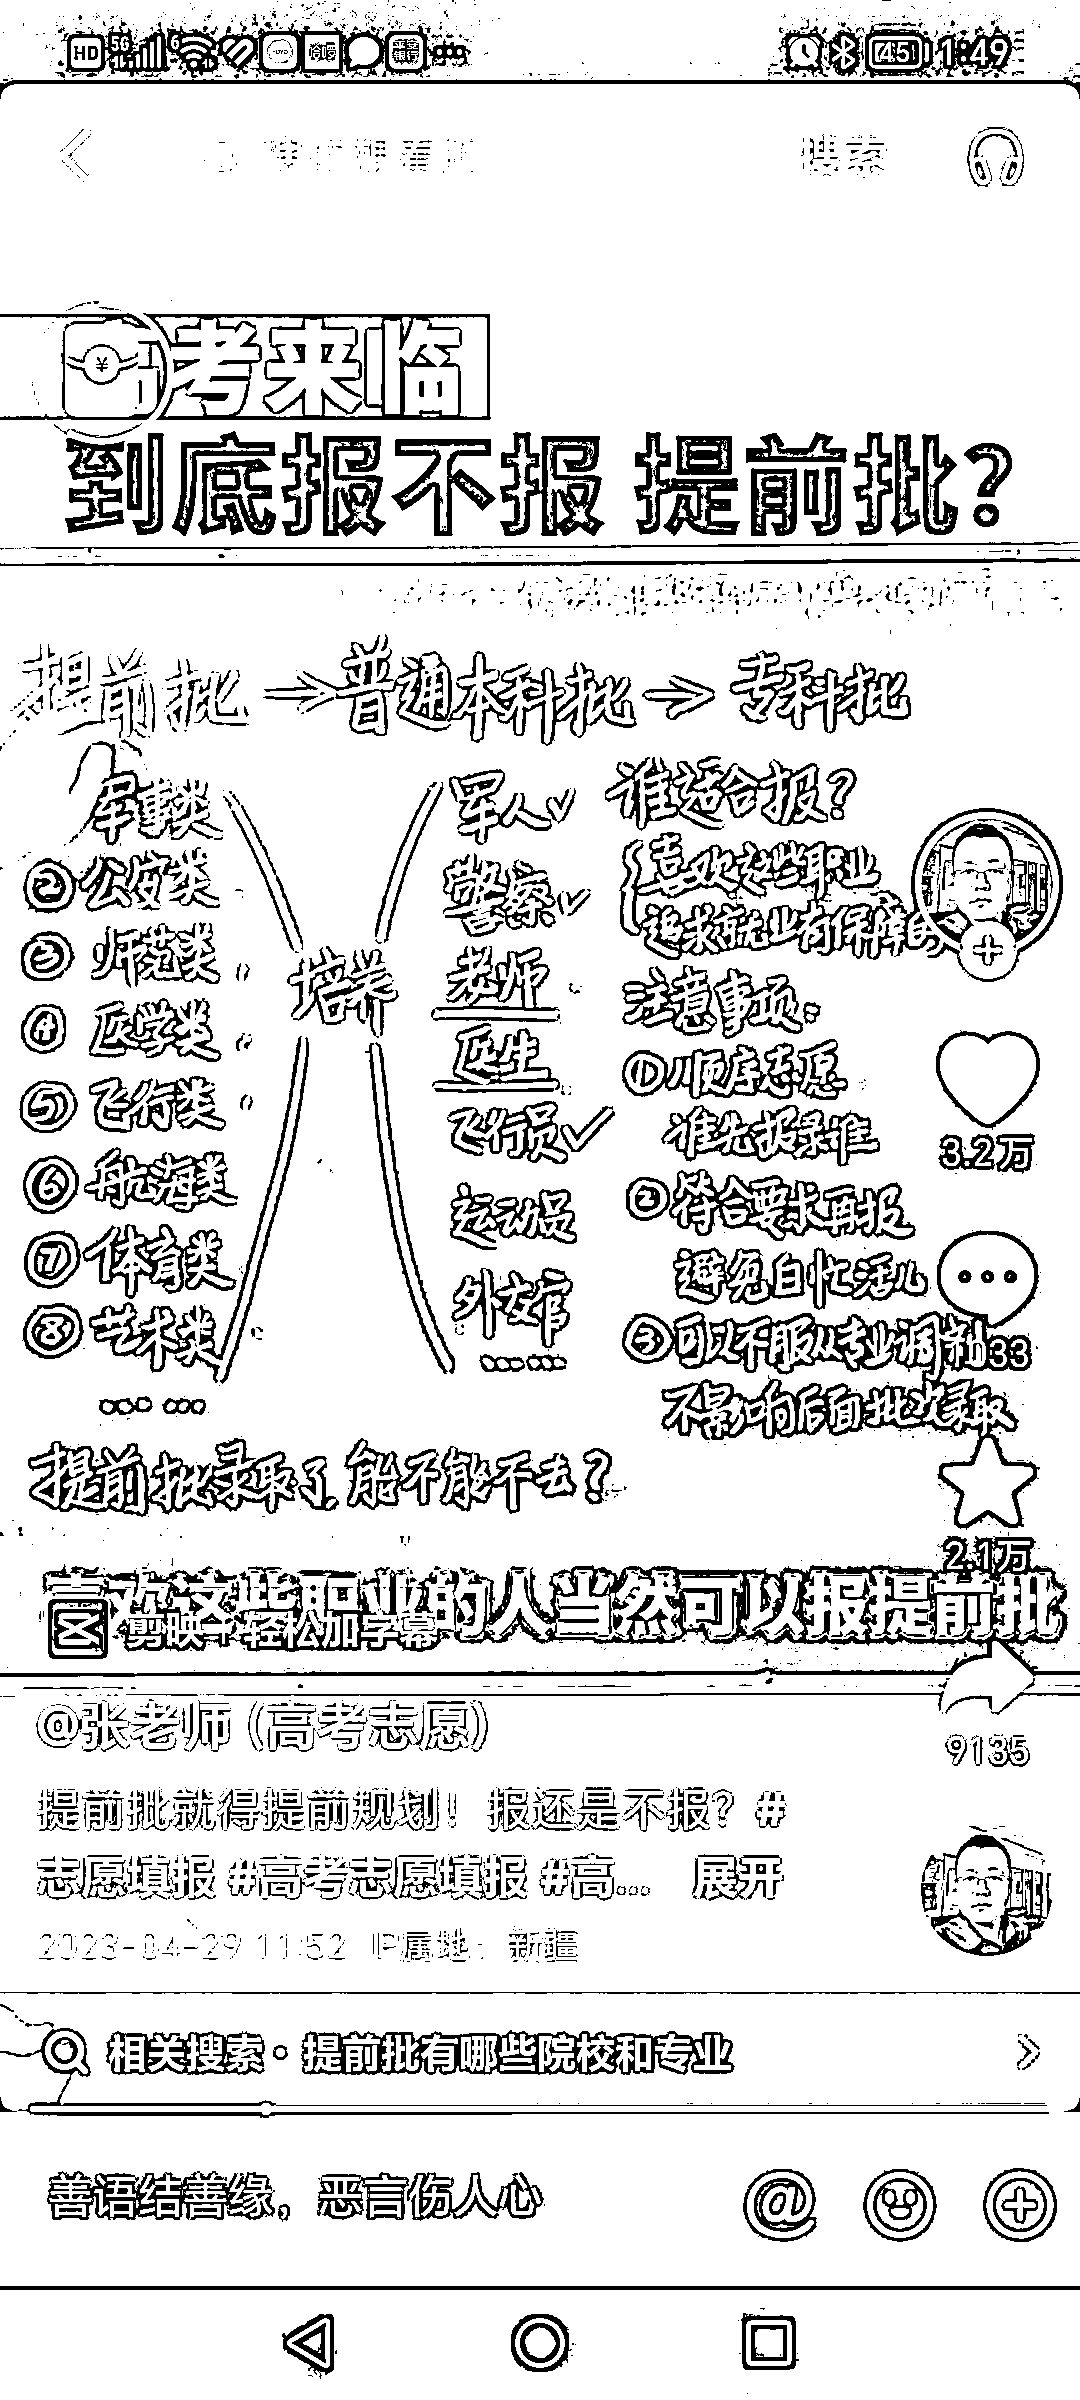 HD 5G 45 1:49
搜索
考来临
到底报不报 提前批?
提前批 → 普通本科批 → 专科批
军事类
②公安类
③师范类
④医学类
⑤飞行类
⑥航海类
⑦体育类
⑧艺术类
培养
军人✓
警察✓
老师
医生
飞行员✓
运动员
外交官
谁适合报?
喜欢这些职业
追求就业有保障的
注意事项:
①顺序志愿
谁先报录谁
②符合要求再报
避免白忙活儿
③可以不服从专业调剂
不影响后面批次录取
提前批录取了,能不能不去?
3.2万
33
2.1万
9135
喜欢这些职业的人当然可以报提前批
剪映 轻松加字幕
@张老师 (高考志愿)
提前批就得提前规划！报还是不报？#
志愿填报 #高考志愿填报 #高... 展开
2023-04-29 11:52 IP属地：新疆
相关搜索 · 提前批有哪些院校和专业
善语结善缘，恶言伤人心